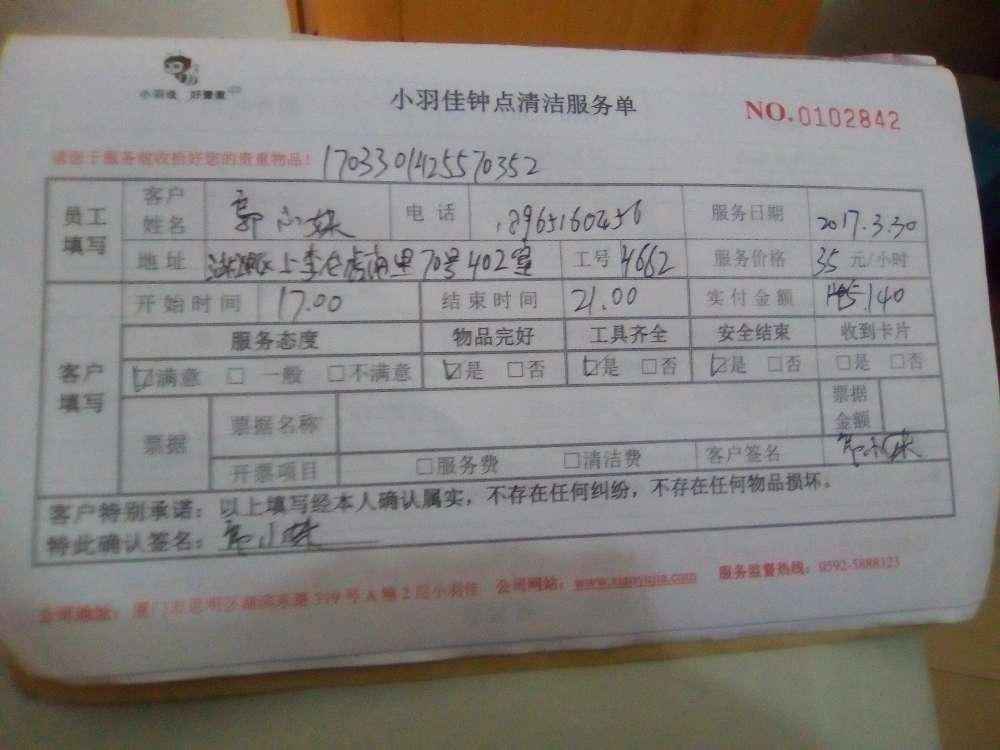 小羽佳 好管家
小羽佳钟点清洁服务单
NO.0102842
请您于服务前收拾好您的贵重物品！ 1703301425570352
员工填写 客户姓名 郭小妹 电话 18965160456 服务日期 2017.3.30
地址 里70号402室 工号 4662 服务价格 35 元/小时
客户填写 开始时间 17.00 结束时间 21.00 实付金额 140
服务态度 物品完好 工具齐全 安全结束 收到卡片
☑满意 □一般 □不满意 ☑是 □否 ☑是 □否 ☑是 □否 □是 □否
票据 票据名称 票据金额
开票项目 □服务费 □清洁费 客户签名 郭小妹
客户特别承诺：以上填写经本人确认属实，不存在任何纠纷，不存在任何物品损坏。
特此确认签名：郭小妹
公司地址：厦门市思明区湖滨东路319号A幢2层小羽佳 公司网站：www.xiaoyujia.com 服务监督热线：0592-5888123